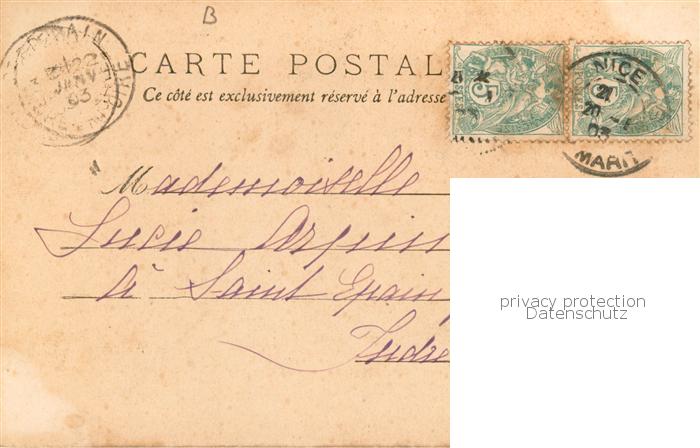 B
CARTE POSTAL
Ce côté est exclusivement réservé à l'adresse
NICE
21
20
03
MARIT
22
JANV
03
Mademoiselle
Lucie Arpin
à Saint Epain
Indre
privacy protection
Datenschutz